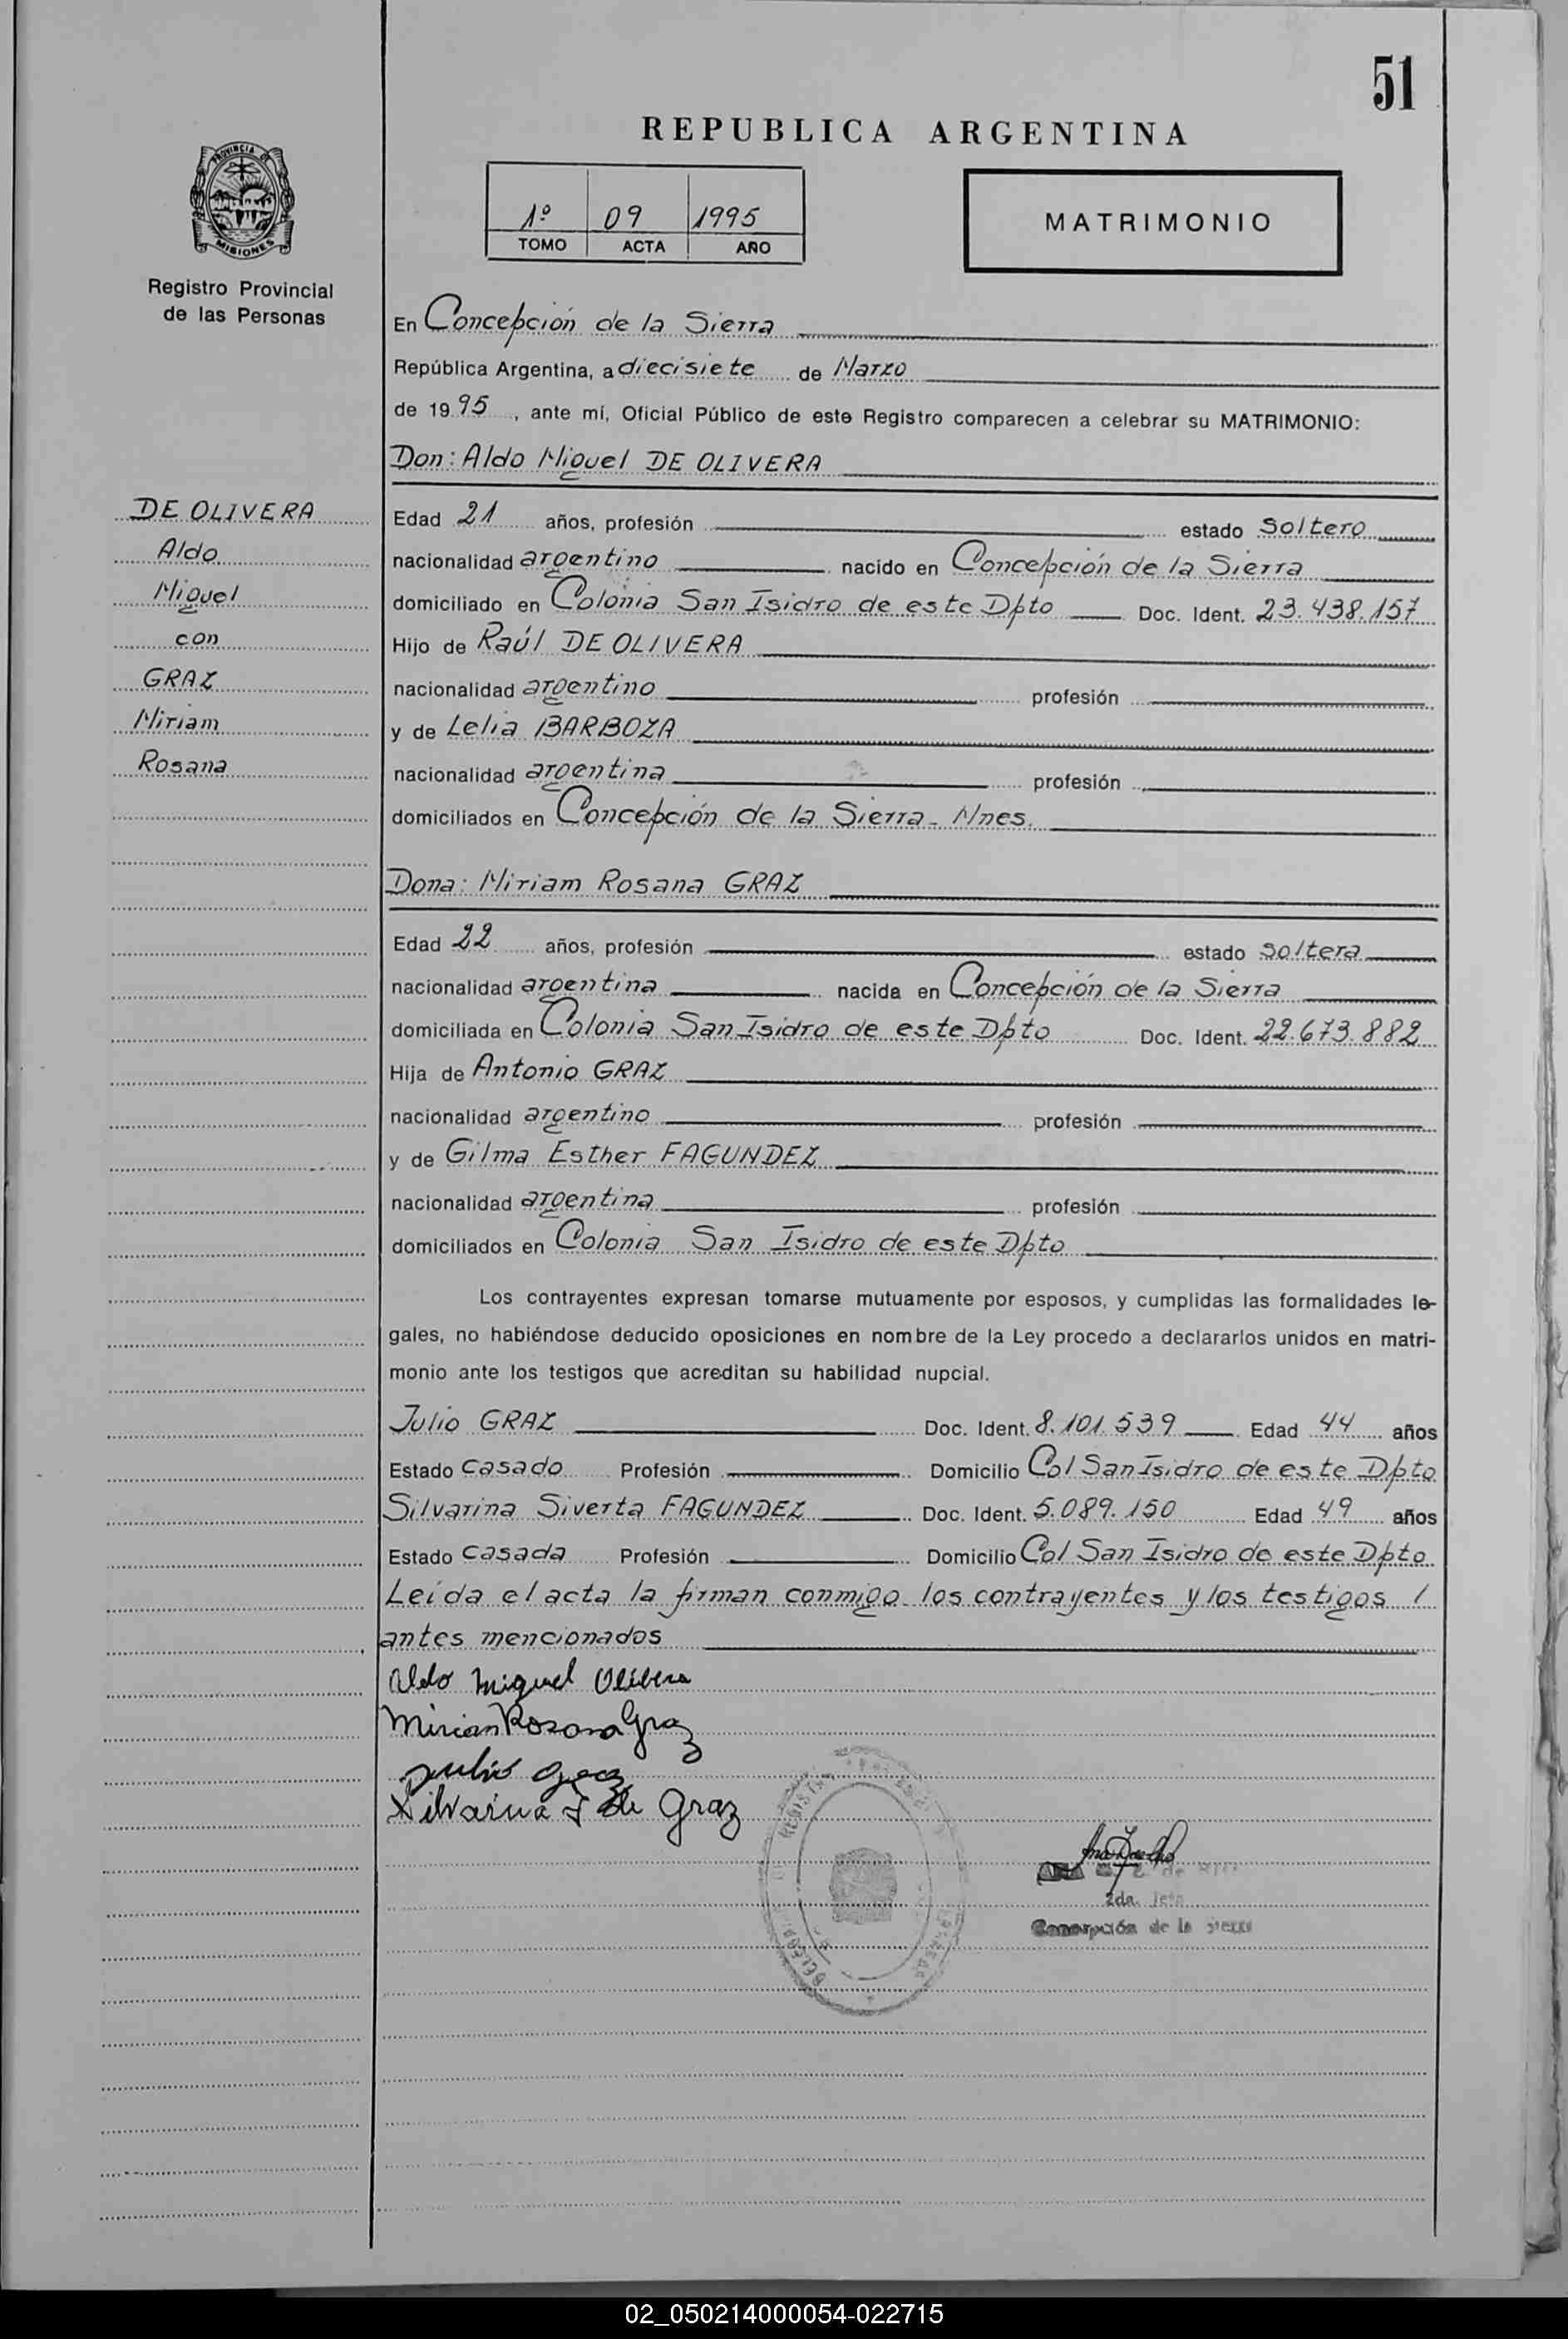 51
REPUBLICA ARGENTINA
1º 09 1995
TOMO ACTA AÑO
MATRIMONIO
PROVINCIA DE
MISIONES
Registro Provincial
de las Personas
En Concepción de la Sierra
República Argentina, a diecisiete de Marzo
de 1995, ante mí, Oficial Público de este Registro comparecen a celebrar su MATRIMONIO:
Don: Aldo Miguel DE OLIVERA
DE OLIVERA
Aldo
Miguel
con
GRAZ
Miriam
Rosana
Edad 21 años, profesión estado Soltero
nacionalidad argentino nacido en Concepción de la Sierra
domiciliado en Colonia San Isidro de este Dpto Doc. Ident. 23.438.157
Hijo de Raúl DE OLIVERA
nacionalidad argentino profesión
y de Lelia BARBOZA
nacionalidad argentina profesión
domiciliados en Concepción de la Sierra - Mnes.
Dona: Miriam Rosana GRAZ
Edad 22 años, profesión estado Soltera
nacionalidad argentina nacida en Concepción de la Sierra
domiciliada en Colonia San Isidro de este Dpto Doc. Ident. 22.673.882
Hija de Antonio GRAZ
nacionalidad argentino profesión
y de Gilma Esther FAGUNDEZ
nacionalidad argentina profesión
domiciliados en Colonia San Isidro de este Dpto
Los contrayentes expresan tomarse mutuamente por esposos, y cumplidas las formalidades le-
gales, no habiéndose deducido oposiciones en nombre de la Ley procedo a declararlos unidos en matri-
monio ante los testigos que acreditan su habilidad nupcial.
Julio GRAZ Doc. Ident. 8.101.539 Edad 44 años
Estado Casado Profesión Domicilio Col San Isidro de este Dpto
Silvarina Siverta FAGUNDEZ Doc. Ident. 5.089.150 Edad 49 años
Estado Casada Profesión Domicilio Col San Isidro de este Dpto
Leída el acta la firman conmigo los contrayentes y los testigos /
antes mencionados
Aldo Miguel Olibera
Miriam Rosana Graz
Julio Graz
Silvarina F de Graz
2da. Jefa
Concepción de la Sierra
02_050214000054-022715